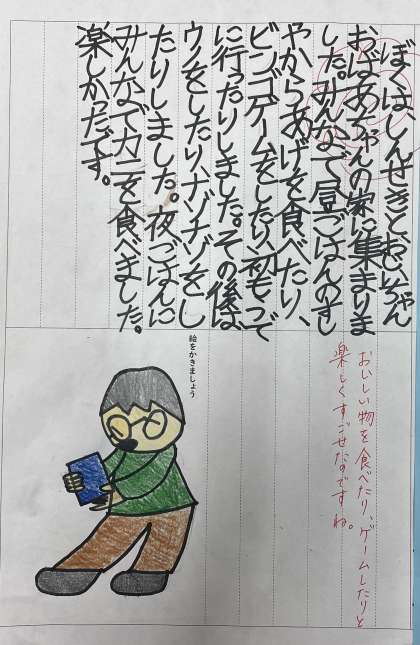 ぼくは、しんせきとおじいちゃん
おばあちゃんの家に集まりま
した。みんなで昼ごはんのすし
やからあげを食べたり、
ビンゴゲームをしたり、初もうで
に行ったりしました。その後は
ウノをしたり、ナゾナゾをし
たりしました。夜ごはんに
みんなでカニを食べました。
楽しかったです。
おいしい物を食べたり、ゲームしたりと
楽しくすごせたのですね。
絵をかきましょう